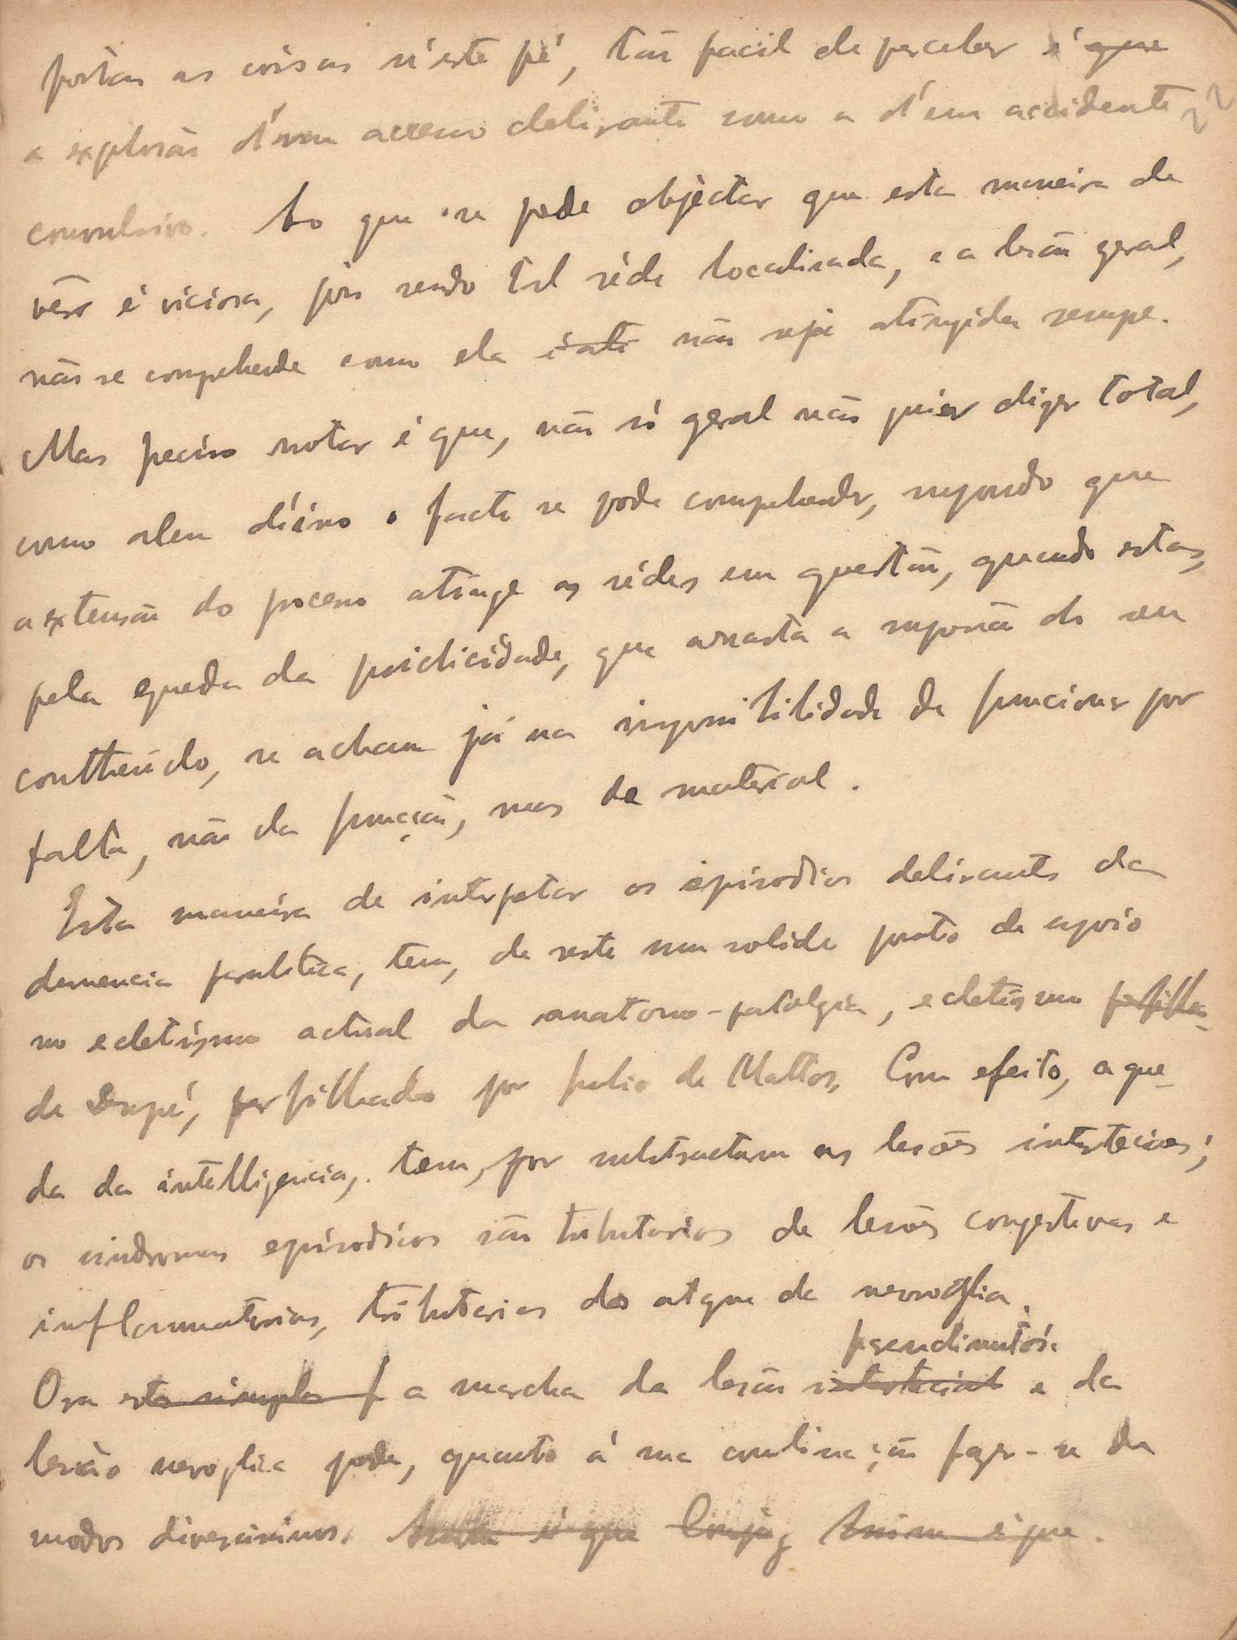 Postas as coisas n'este pé, tão facil de perceber é que
a explosão d'um accesso delirante como a d'um accidente
convulsivo. Ao que se pode objectar que esta maneira de
vêr é viciosa, pois sendo tal séde localisada, e a lesão geral,
não se comprehende como ela não seja atingida sempre.
Mas preciso notar é que, não só geral não quier dizer total,
como alem d'isso o facto se pode comprehender, suppondo que
a extensão do processo atinge as sédes em questão, quando estas,
pela queda da psichicidade, que arrasta a suppressão do seu
contheúdo, se acham já na impossibilidade de funcionar por
falta, não da função, mas de material.
Esta maneira de interpetar os episodios delirantes da
demencia paralitica, tem, de resto um solido ponto de apoio
no ecletismo actual da anatomo-patolgia, ecletismo perfilha-
de Dupré, perfilhado por Julio de Mattos. Com efeito, a que-
da da intelligencia, tem, por substractum as lesões
os sindromas episodicos são tributarios de lesões congestivas e
inflammatorias, tributarias do atque da nevroglia.
Ora esta simples a marcha da lesão parendimatósa e da
lesão nevroglica pode, quanto á sua combinação fazer-se de
modos diversissimos.